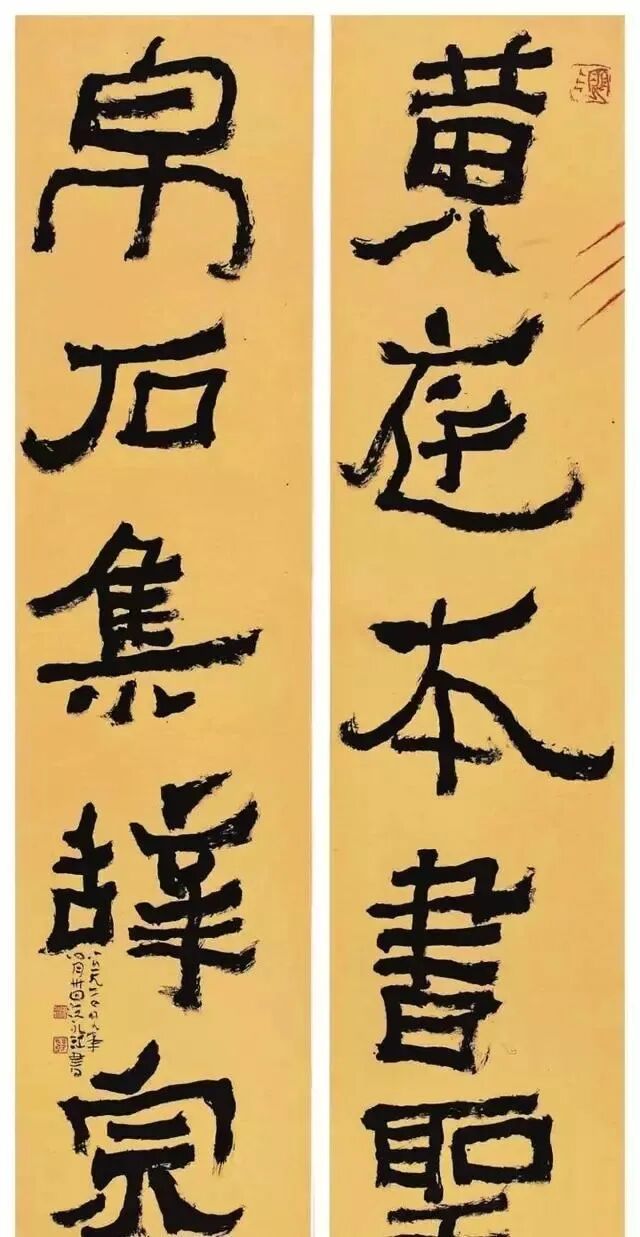 黄庭本書聖
帛石集辞宗